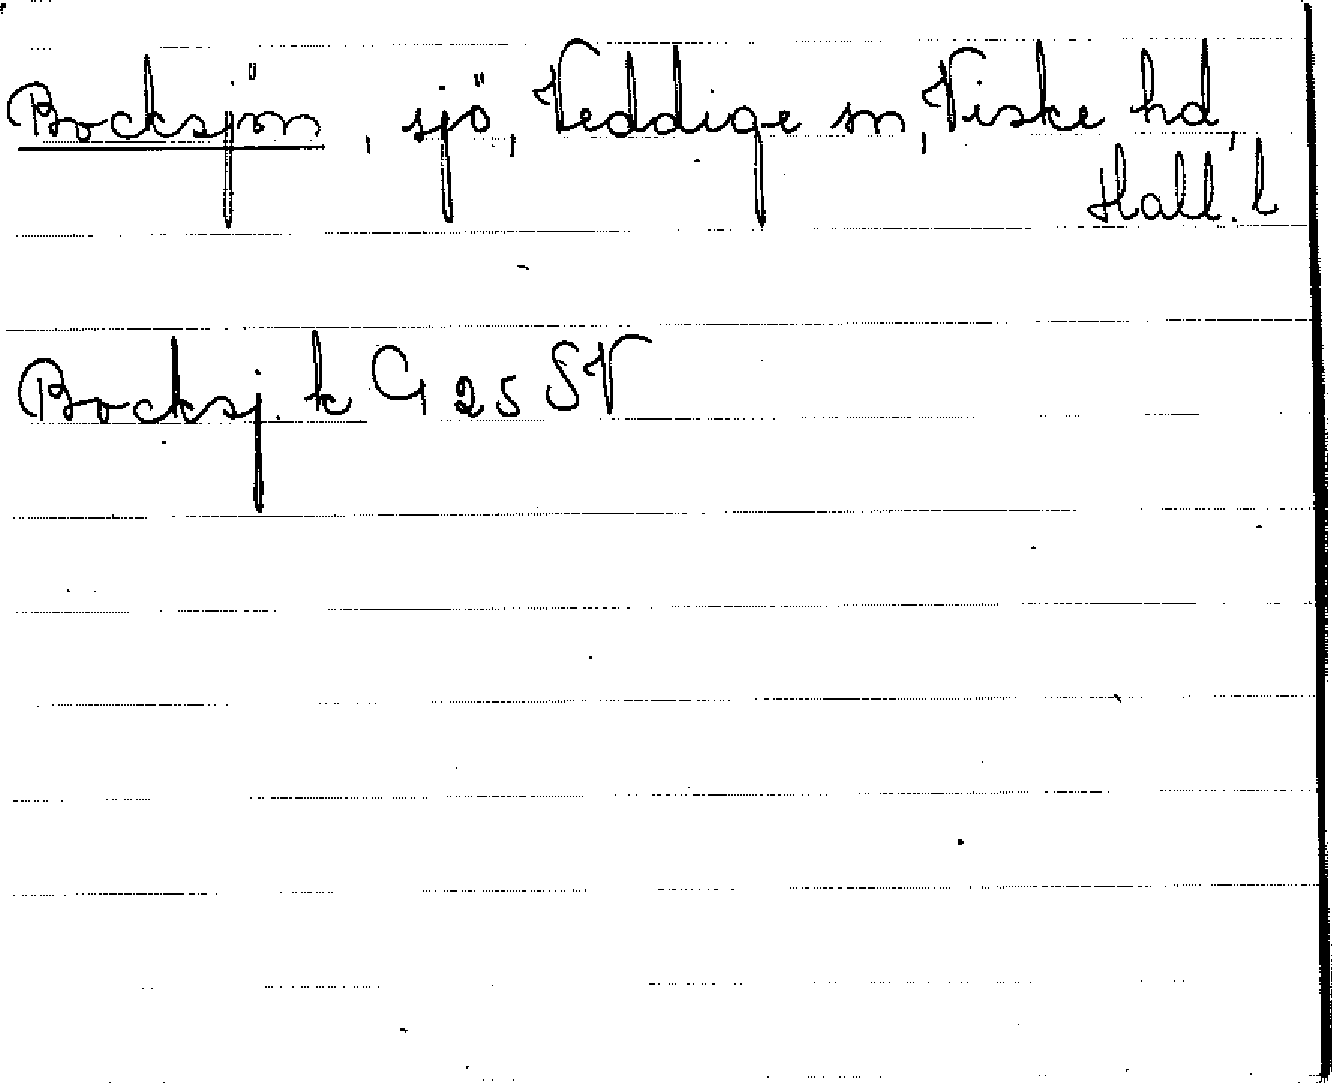 Bocksjön, sjö, Veddige sn, Viske hd,
Hall. l
Bocksj. k G 25 SV